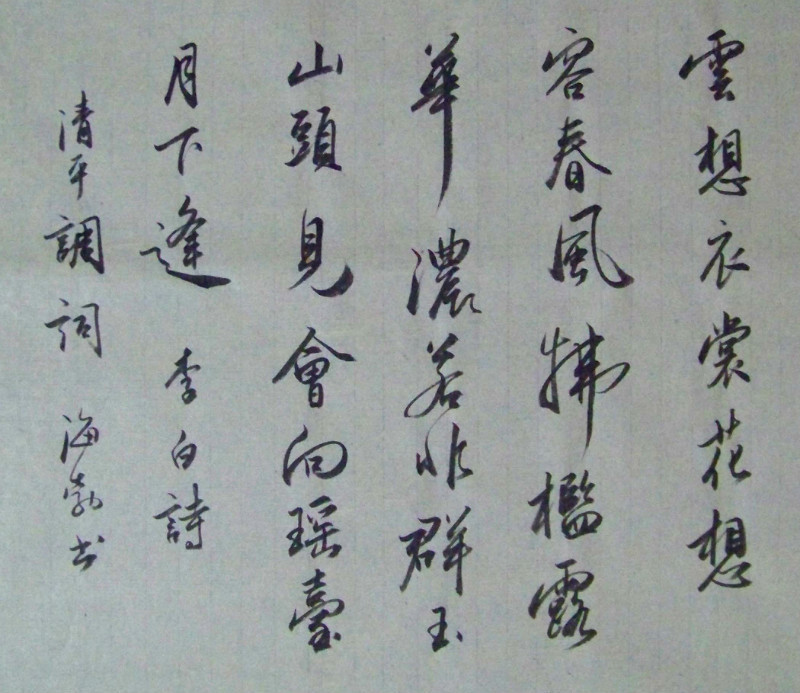 雲想衣裳花想
容春風拂檻露
華濃若非群玉
山頭見會向瑶臺
月下逢 李白詩
清平調詞 海勃书